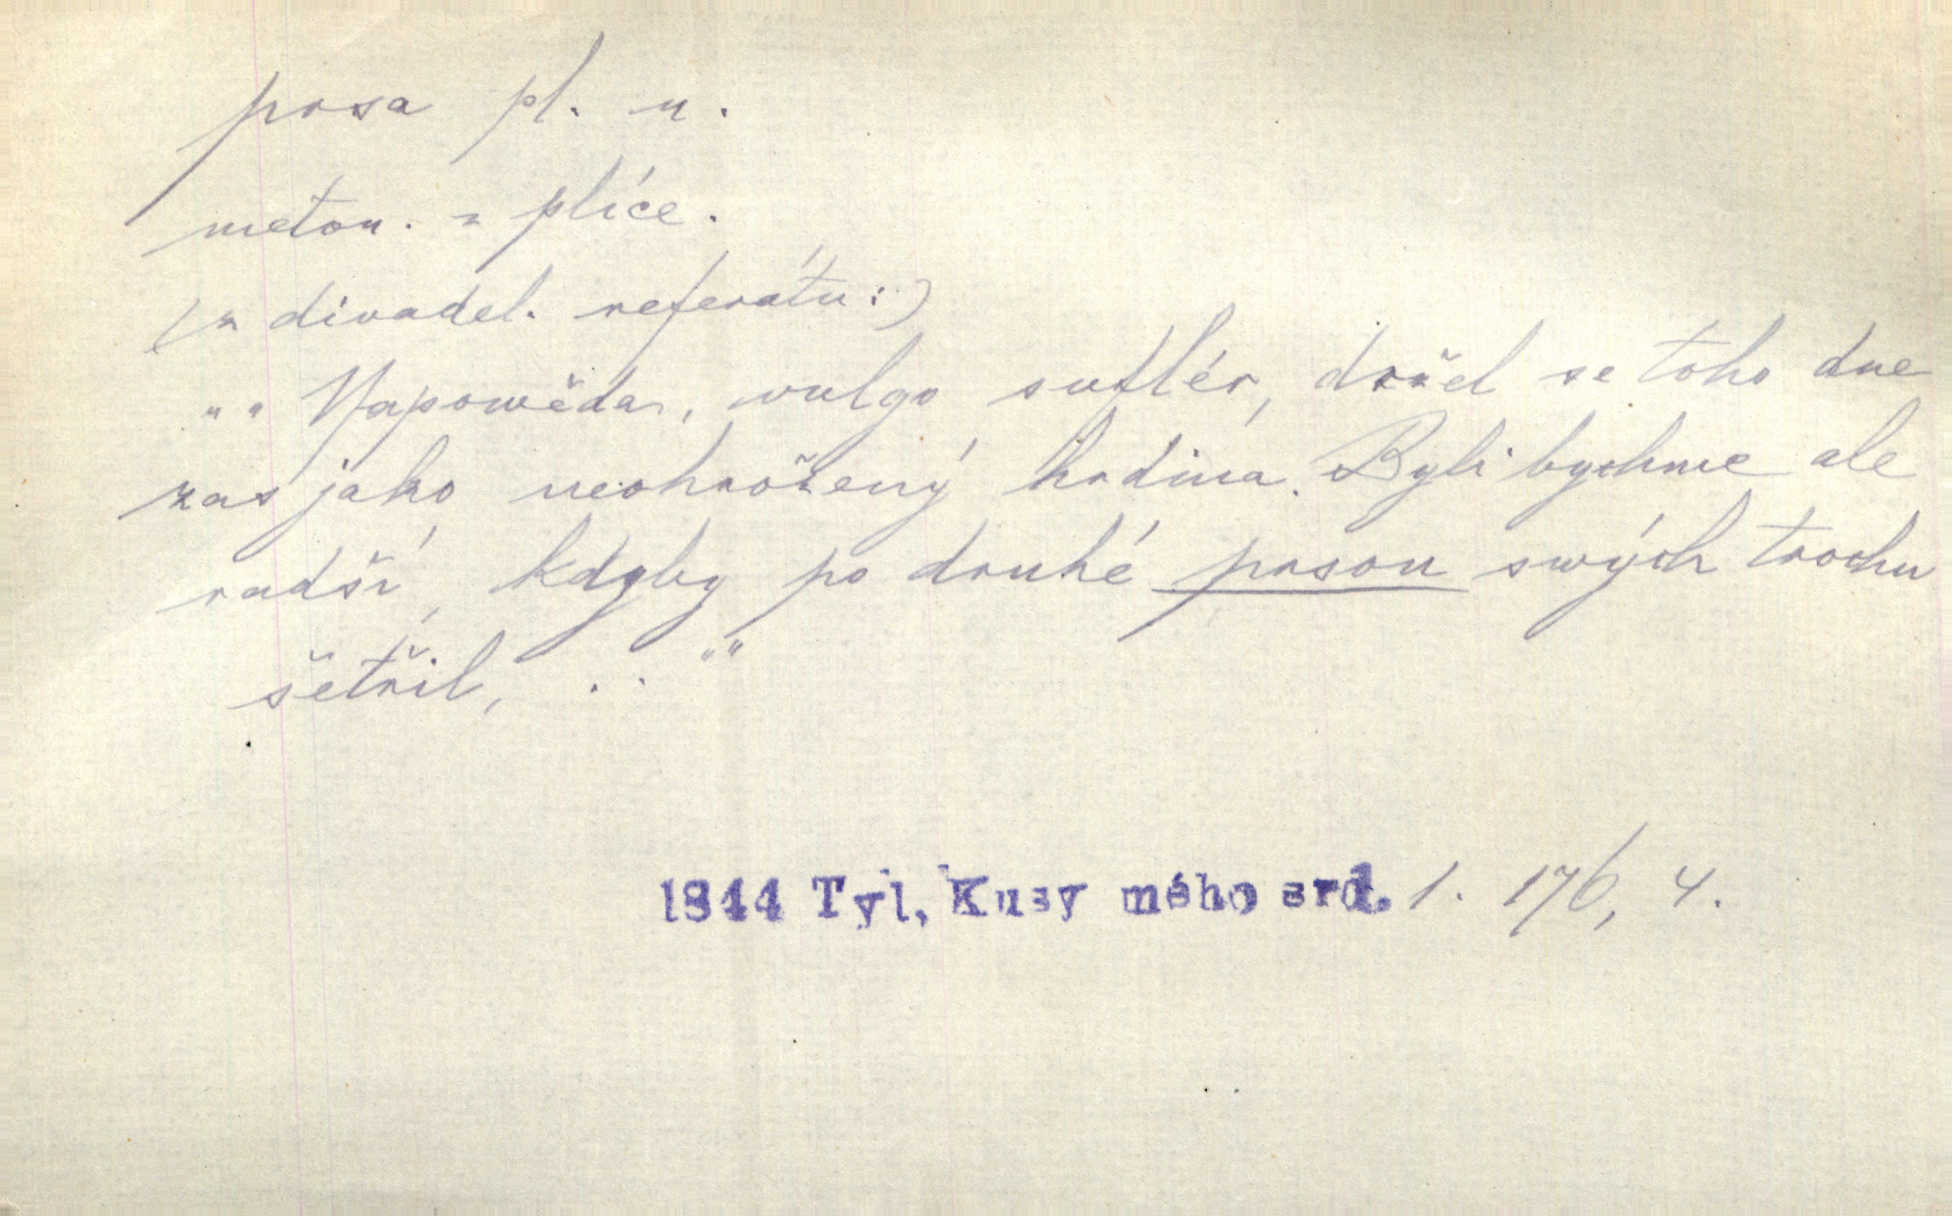 prsa pl. n.
meton. = plíce.
(z divadel. referátu:)
„„ Napowěda, vulgo suflér, držel se toho dne
zas jako neohrožený hrdina. Byli bychme ale
radši, kdyby po druhé prsou swých trochu
šetřil, . . ““
1844 Tyl, Kusy mého srd. 1. 176, 4.